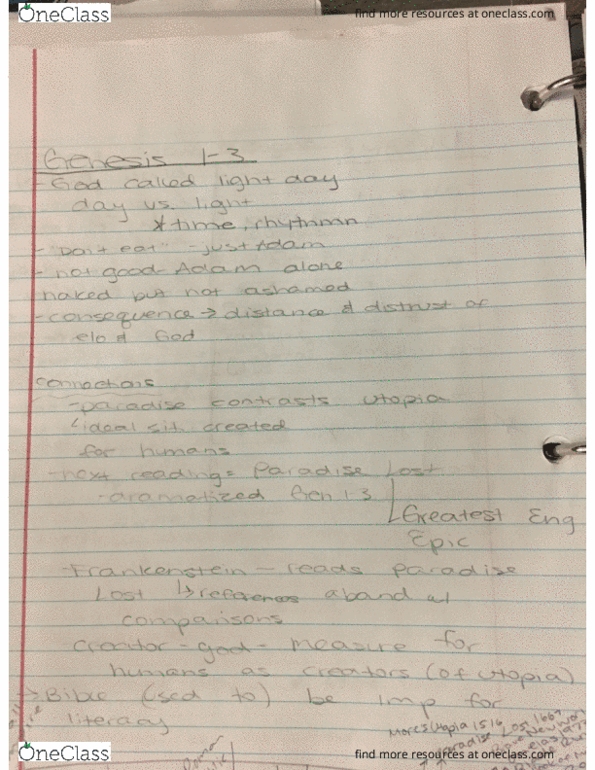 OneClass
find more resources at oneclass.com
Genesis 1-3
-God called light day
day vs. light
*time, rhythmn
- "Don't eat" - just Adam
- not good Adam alone
naked but not ashamed
-consequence → distance & distrust of
e/o & God
Connections
-paradise contrasts utopia
ideal sit. created
for humans
-next reading = Paradise Lost
-dramatized Gen 1-3
Greatest Eng
Epic
-Frankenstein - reads Paradise
Lost ↳ references
comparisons
creator - god - measure for
humans as creators (of utopia)
→ Bible (used to) be imp for
literacy
More's Utopia 1516
Lost 1667
OneClass
find more resources at oneclass.com